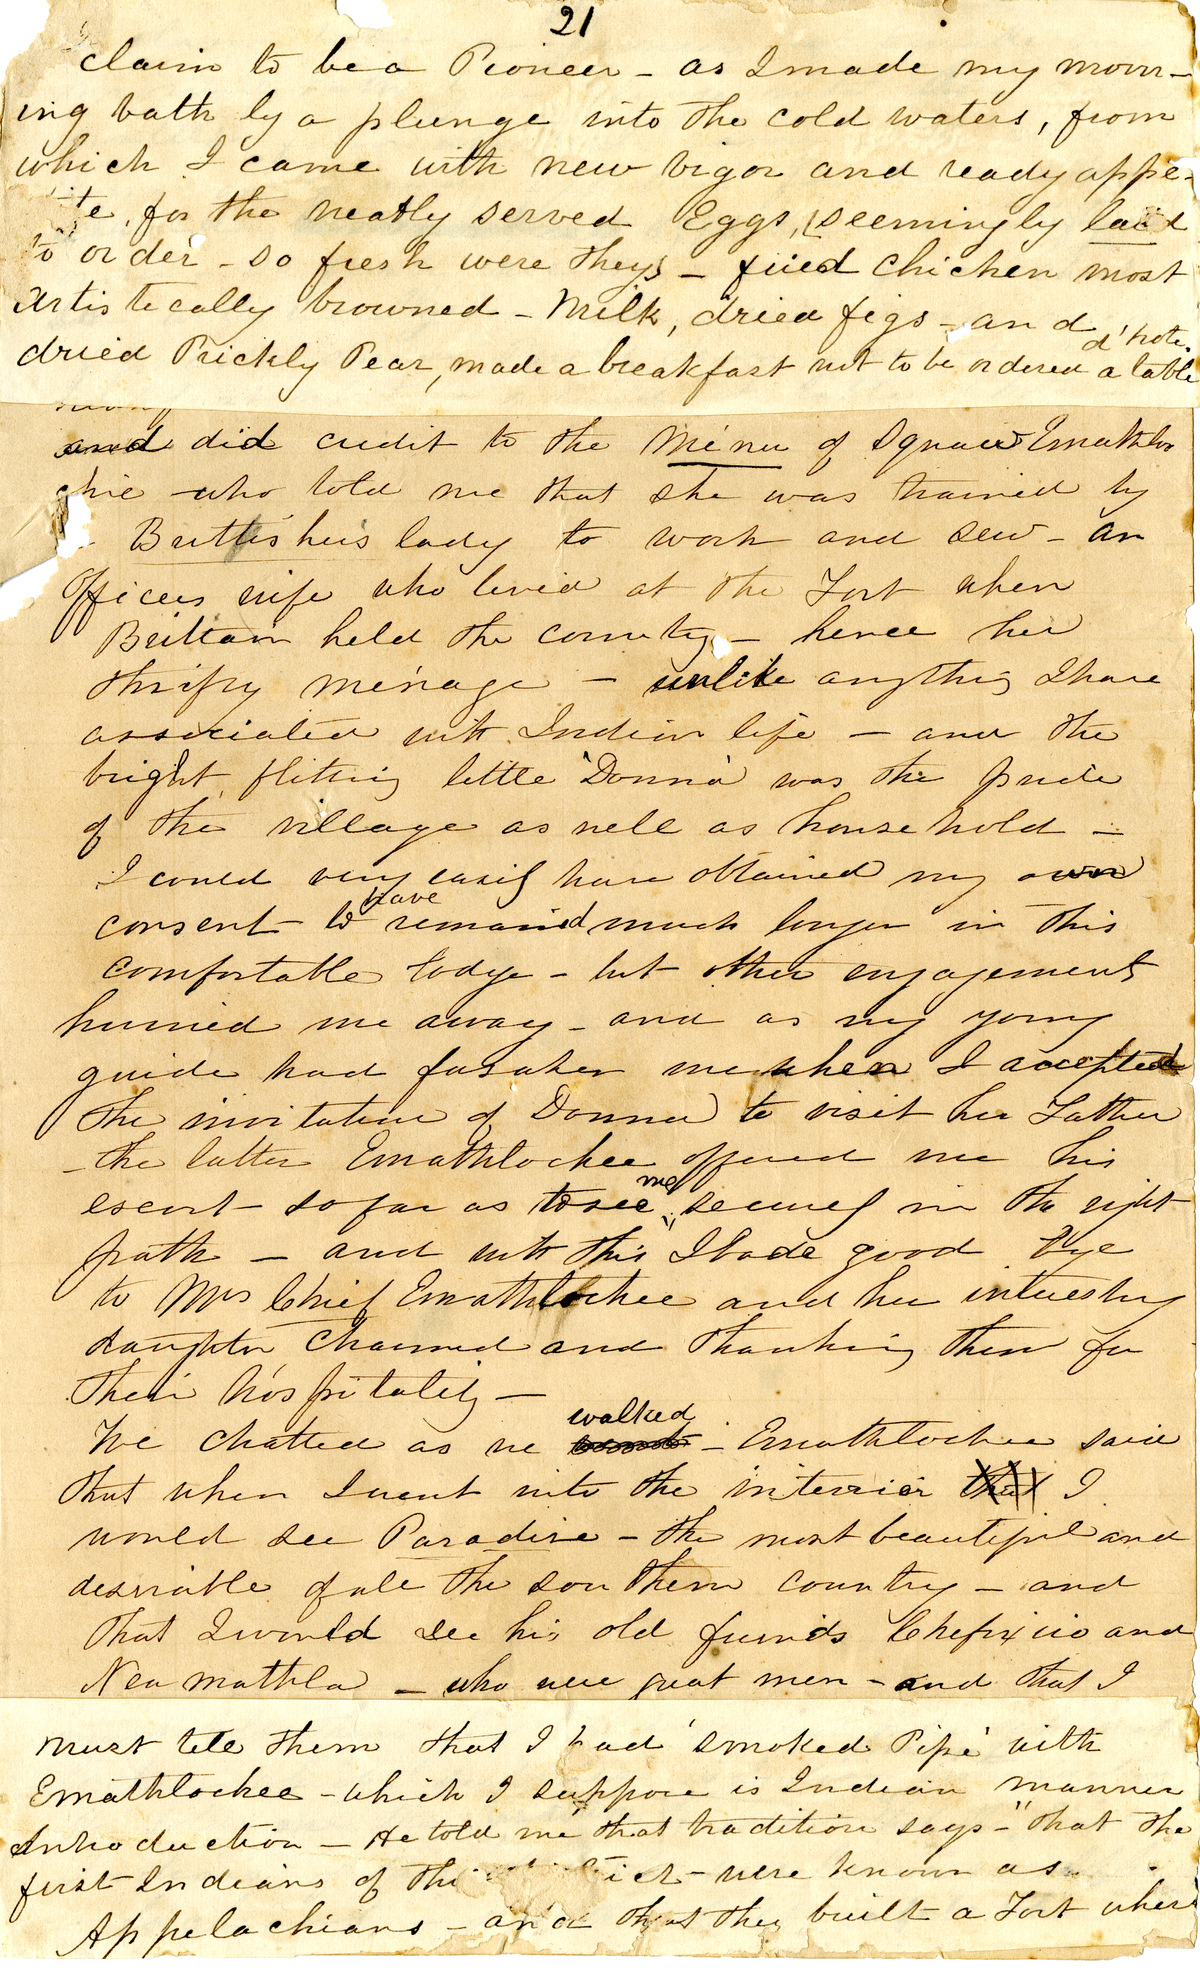 21
claim to be a Pioneer - as I made my morn-
ing bath by a plunge into the cold waters, from
which I came with new vigor and ready appe-
te, for the neatly served Eggs, (seemingly laid
to order - so fresh were they) - fried chicken most
artistically browned - Milk, dried figs - and
dried Prickly Pear, made a breakfast not to be ordered a table
d'hote.
and did credit to the Menu of Squaw Emathlo
chie - who told me that she was trained by
Buttishers lady to work and sew - an
Officers wife who lived at the Fort when
Brittain held the country - hence her
thrifty menage - unlike anything I have
associated with Indian life - and the
bright, flitting little 'Donna' was the pride
of the village as well as household -
I could very easily have obtained my own
consent - to have remained much longer in this
comfortable lodge - but other engagements
hurried me away - and as my young
guide had forsaken me when I accepted
the invitation of Donna to visit her Father
- the latter Emathlochee offered me his
escort - so far as to see me secured in the right
path - and with this I bade good bye
to Mrs Chief Emathlochee and her interesting
daughter charmed and thanking them for
their hospitality -
We chatted as we walked - Emathlochee said
that when I went into the interrior that I
would see Paradise - the most beautiful and
desirable of all the southern country - and
that I would see his old friends Chefixico and
Neamathla - who were great men - and that I
must tell them that I had 'smoked Pipe' with
Emathlochee - which I suppose is Indian manner
Introduction - He told me that tradition says - "that the
first Indians of thi ict - were known as
Appelachians - and that they built a Fort where